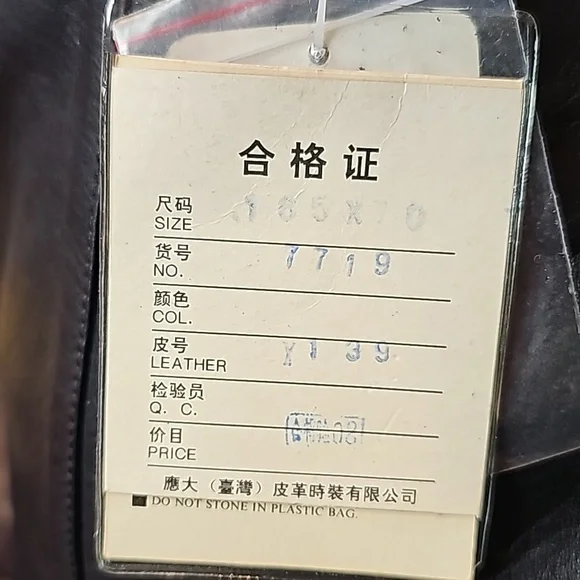 合格证
尺码 165X70
SIZE
货号 1719
NO.
颜色
COL.
皮号 X139
LEATHER
检验员
Q. C.
价目
PRICE
應大（臺灣）皮革時裝有限公司
DO NOT STONE IN PLASTIC BAG.